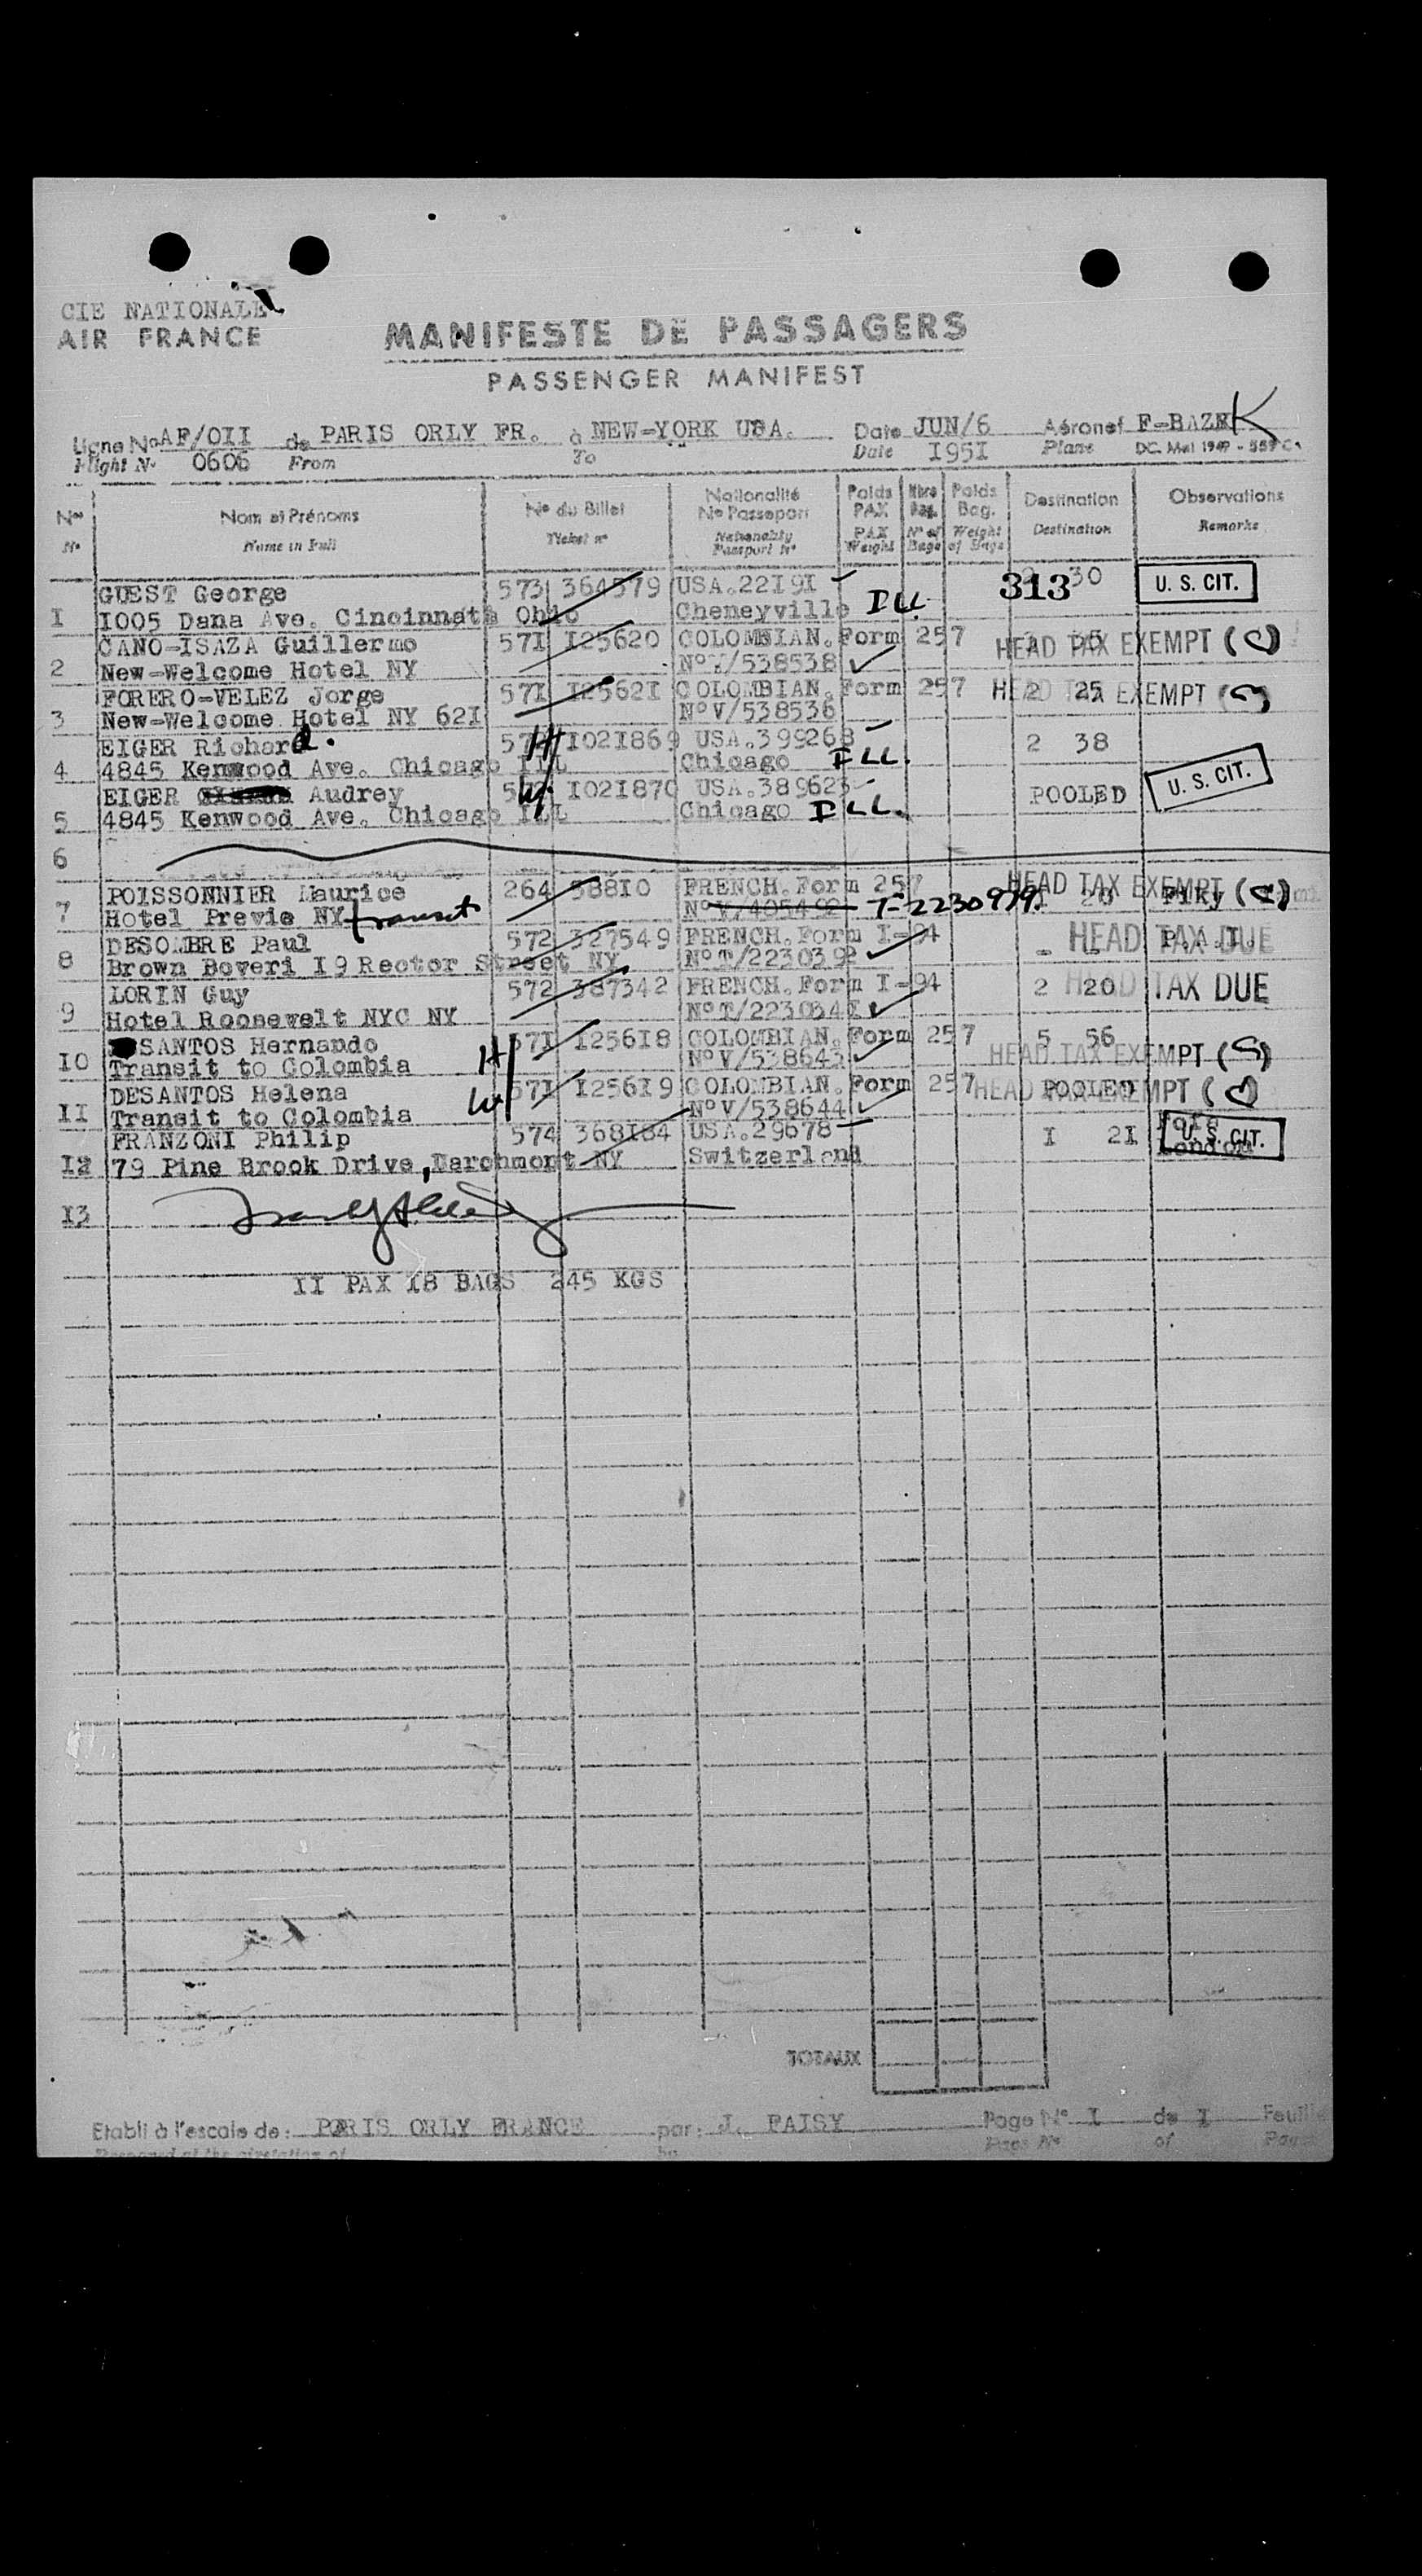 CIE NATIONALE
AIR FRANCE
MANIFESTE DE PASSAGERS
PASSENGER MANIFEST
Ligne No AF/OII de PARIS ORLY FR. à NEW-YORK USA. Date JUN/6 Aéronef F-BAZK
Flight N. 0606 From To Date I95I Plane
Nos Nom et Prénoms No du Billet Nationalité No Passeport Poids PAX Nbre Bag. Poids Bag. Destination Observations
N. Name in Full Ticket no Nationality Passport No PAX Weight No of Bags Weight of Bags Destination Remarks
GUEST George 573 364579 USA.22I9I 313 30 U. S. CIT.
I I005 Dana Ave. Cincinnati Ohio Cheneyville ILL.
CANO-ISAZA Guillermo 57I I25620 COLOMBIAN. Form 257 HEAD TAX EXEMPT (C)
2 New-Welcome Hotel NY No /538538
FORERO-VELEZ Jorge 57I I2562I COLOMBIAN. Form 257 2 25 HEAD TAX EXEMPT
3 New-Welcome Hotel NY 62I No V/538536
EIGER Richard. H I02I869 USA.399268 2 38
4 4845 Kenwood Ave. Chicago ILL Chicago ILL.
EIGER Audrey W. I02I870 USA.389623 POOLED U. S. CIT.
5 4845 Kenwood Ave. Chicago ILL Chicago ILL.
6
POISSONNIER Maurice 264 388I0 FRENCH. Form 257 20 HEAD TAX EXEMPT
7 Hotel Previe NY transit No V/405492 T-2230979.
DESOMBRE Paul 572 327549 FRENCH. Form I-94 - - HEAD TAX DUE
8 Brown Boveri I9 Rector Street NY No T/2230392
LORIN Guy 572 387342 FRENCH. Form I-94 2 20 HEAD TAX DUE
9 Hotel Roosevelt NYC NY No T/223034I
SANTOS Hernando H 57I I256I8 COLOMBIAN. Form 257 5 56
I0 Transit to Colombia No V/538643 HEAD TAX EXEMPT
DESANTOS Helena W 57I I256I9 COLOMBIAN. Form 257 POOLED HEAD TAX EXEMPT
II Transit to Colombia No V/538644
FRANZONI Philip 574 368I84 USA.29678 I 2I U. S. CIT. London
I2 79 Pine Brook Drive, Larchmont NY Switzerland
I3
II PAX I8 BAGS 245 KGS
TOTAUX
Etabli à l'escale de: PARIS ORLY FRANCE par: J. FAISY Page No I de I Feuille
by Page No of